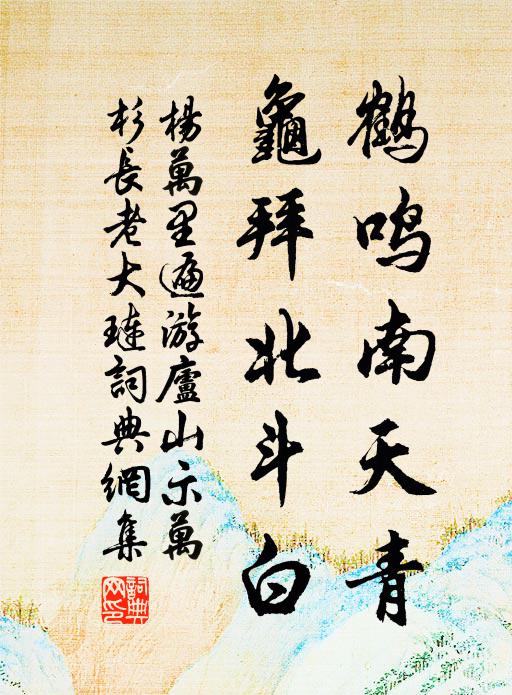 鶴鳴南天青
龜拜北斗白
楊萬里遍游廬山示萬
杉長老大璉詞典網集
詞典
网印